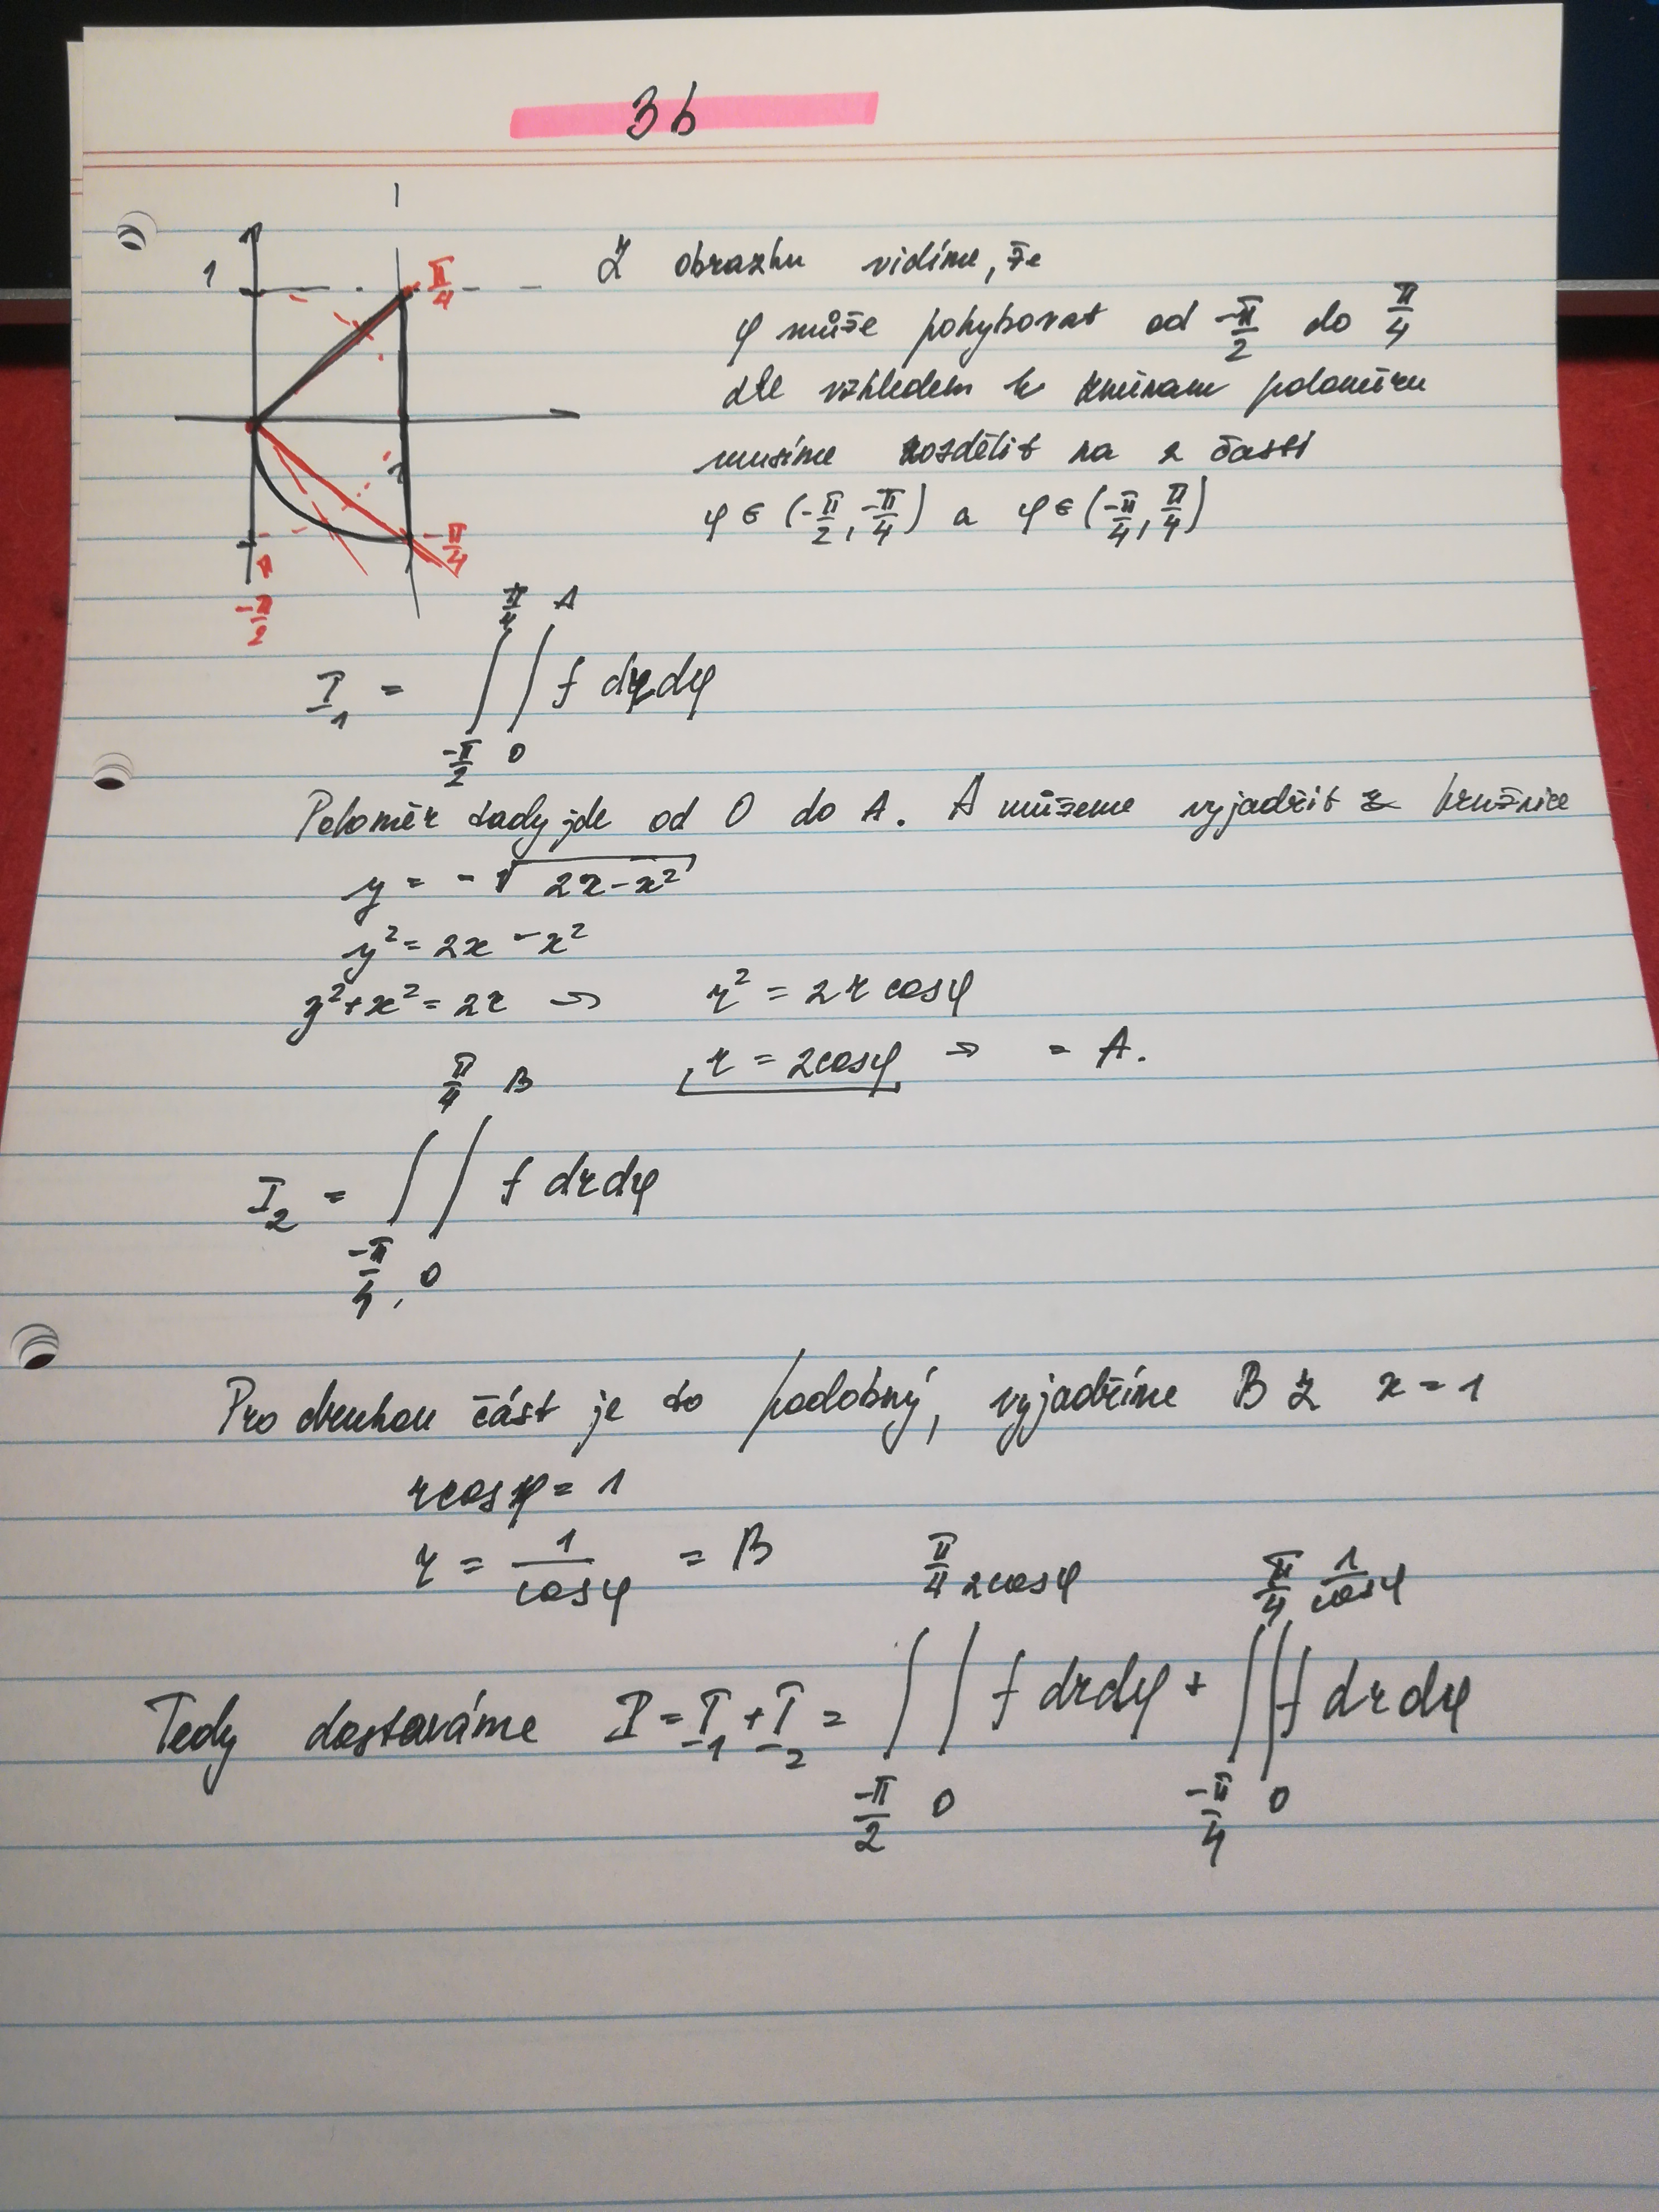 3b
1
1
π/4
1
-π/4
-π/2
Z obrazku vidíme, že
φ může pohybovat od -π/2 do π/4
dle vzhledem k změnam poloměru
musíme rozdělit na 2 časti
φ ∈ (-π/2, -π/4) a φ ∈ (-π/4, π/4)
I₁ = ∫_{-π/2}^{π/4} ∫_0^A f drdφ
Poloměr tady jde od 0 do A. A můžeme vyjadřit z kružnice
y = -√(2x-x²)
y² = 2x - x²
y² + x² = 2x ⇒ r² = 2r cosφ
r = 2cosφ ⇒ = A.
I₂ = ∫_{-π/4}^{π/4} ∫_0^B f drdφ
Pro druhou část je to podobný, vyjadříme B z x = 1
rcosφ = 1
r = 1/cosφ = B
Tedy dostaváme I = I₁ + I₂ = ∫_{-π/2}^{π/4} ∫_0^{2cosφ} f drdφ + ∫_{-π/4}^{π/4} ∫_0^{1/cosφ} f drdφ